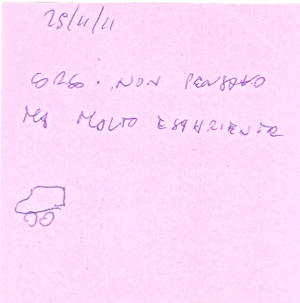 25/11/11
NON PENSAVO
MA MOLTO ESAURIENTE